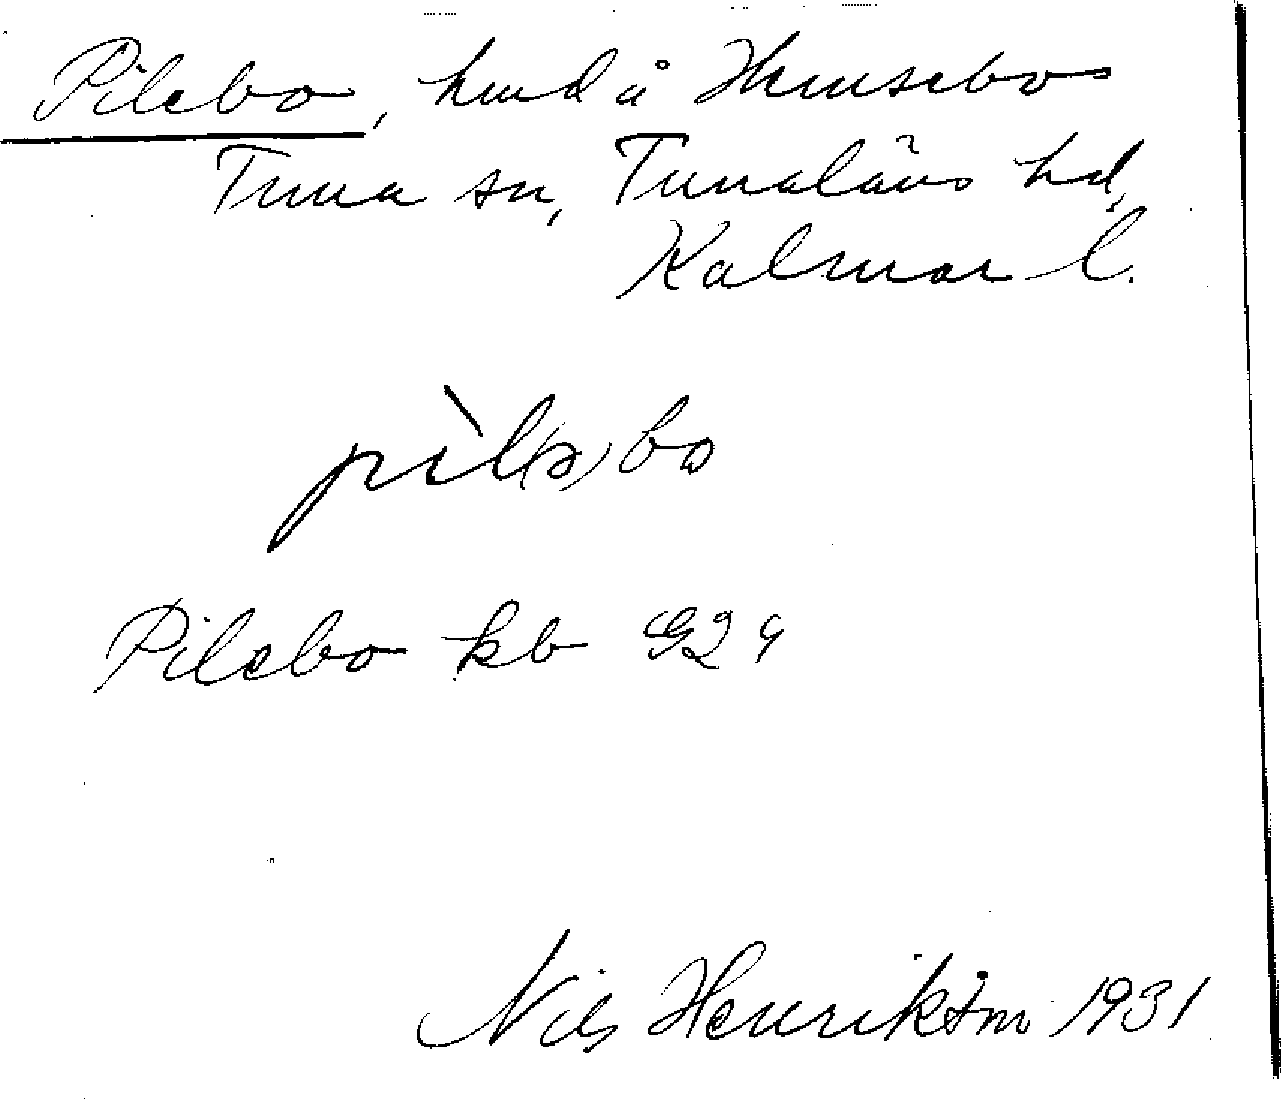 Pilebo, hmd å Hemsebo
Tuna sn, Tunaläns hd,
Kalmar l.
pìl(ə)bo
Pilebo kb G29
Nils Henriksson 1931